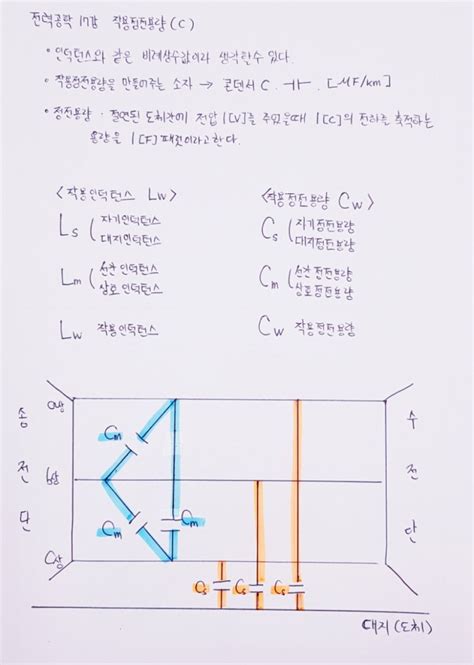 전력공학 17강 작용정전용량 (C)
• 인덕턴스와 같은 비례상수값이라 생각할수 있다.
• 작용정전용량을 만들어주는 소자 → 콘덴서 C. ⊣⊢. [μF/km]
• 정전용량 : 절연된 도체간에 전압 1[V]를 주었을때 1[C]의 전하를 축적하는
용량을 1[F] 패럿이라고한다.
<작용인덕턴스 Lw>
Ls ( 자기인덕턴스
대지인덕턴스
Lm ( 선간 인덕턴스
상호 인덕턴스
Lw 작용인덕턴스
<작용정전용량 Cw>
Cs ( 자기정전용량
대지정전용량
Cm ( 선간 정전용량
상호정전용량
Cw 작용정전용량
송전단
a상
b상
C상
Cm
Cm
Cm
Cs
Cs
Cs
수전단
대지 (도체)